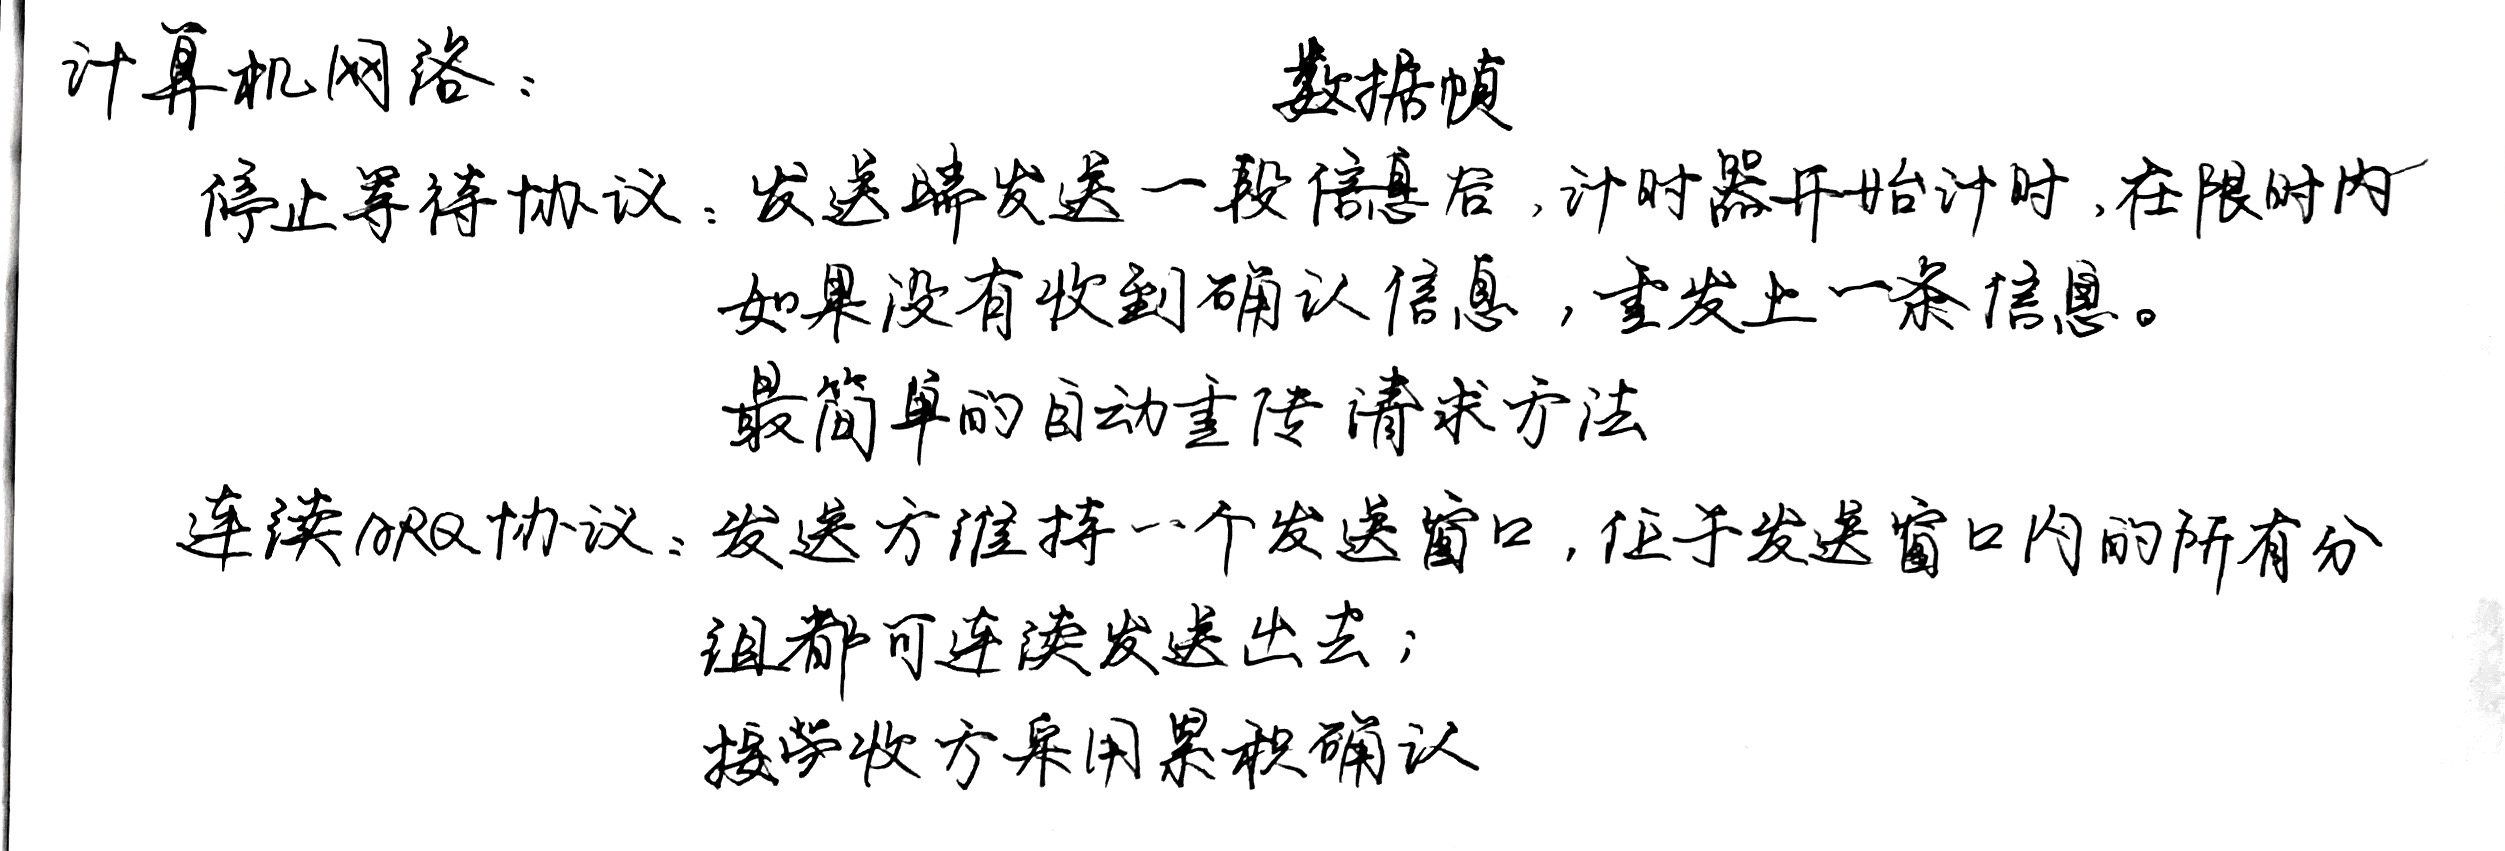 计算机网络：
数据帧
停止等待协议：发送端发送一段信息后，计时器开始计时，在限时内
如果没有收到确认信息，重发上一条信息。
最简单的自动重传请求方法
连续ARQ协议：发送方维持一个发送窗口，位于发送窗口内的所有分
组都可连续发送出去；
接收方采用累积确认